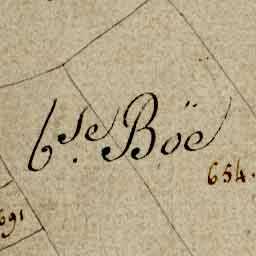 6.se Böe
654.
691